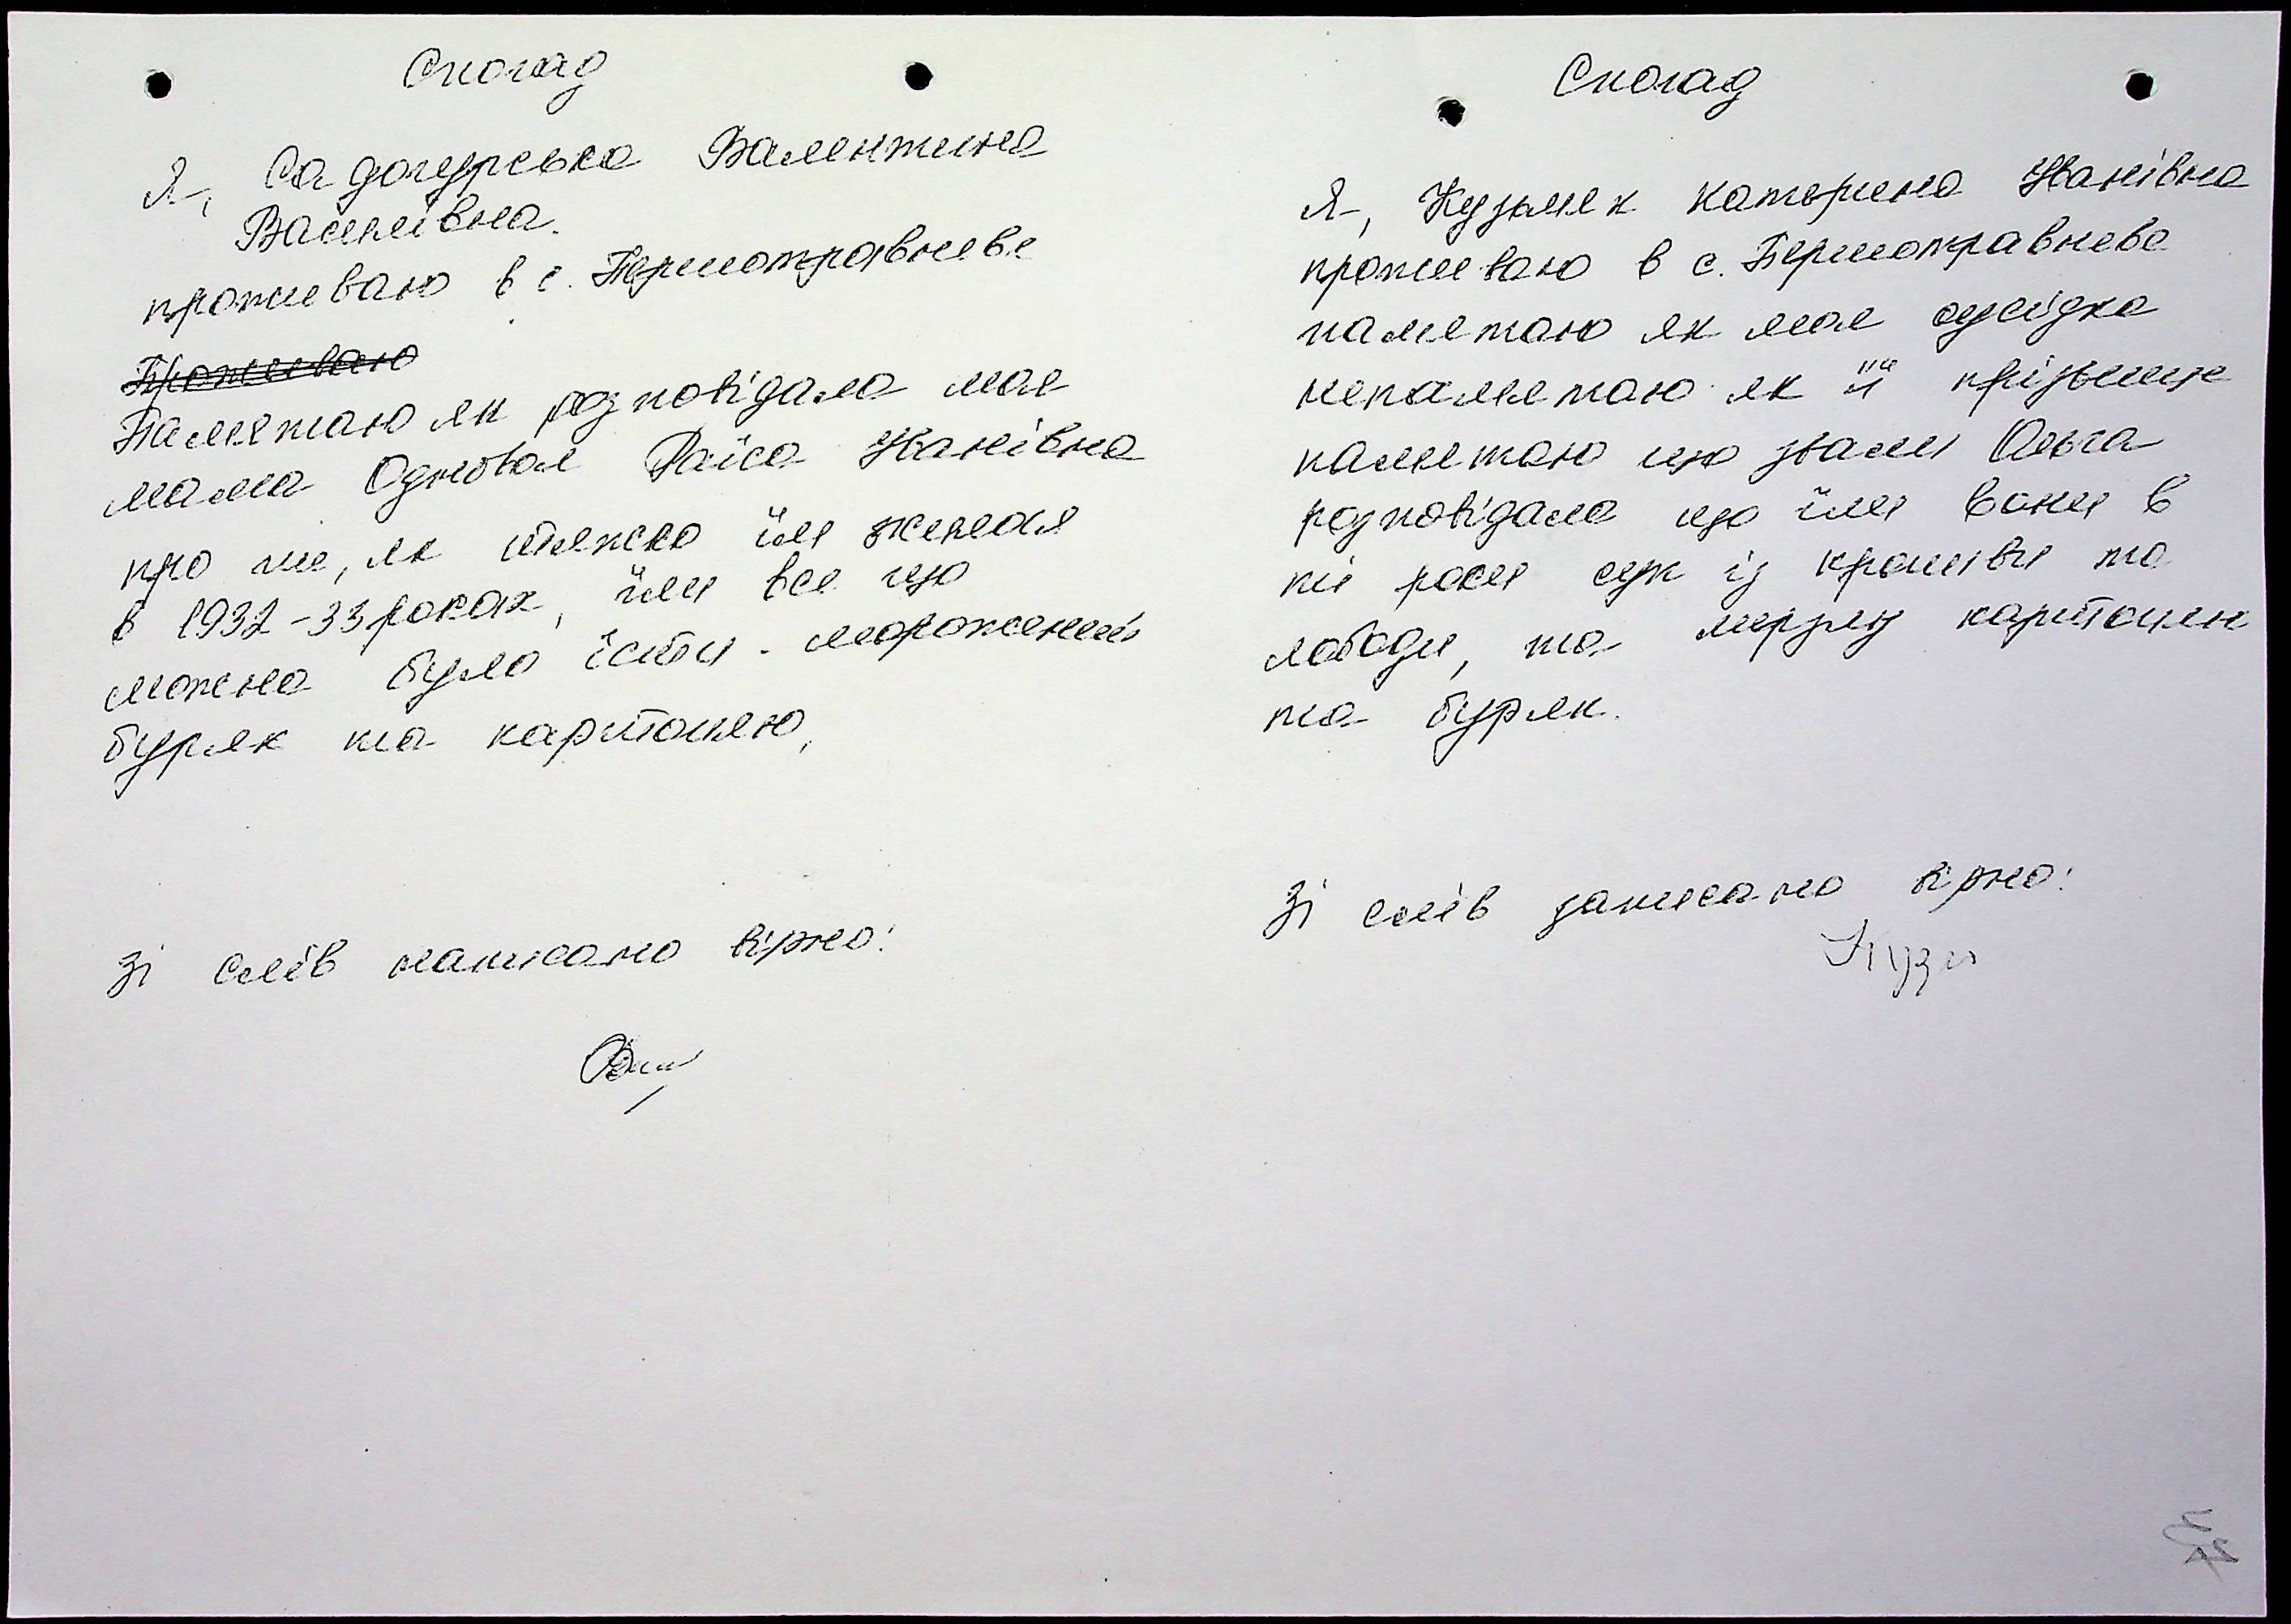 Спогад
Я, Садогурська Валентина
Василівна.
проживаю в с. Першотравневе
Проживаю
Памятаю як розповідала моя
мама Одновол Раїса Іванівна
про те, як тяжко їм жилося
в 1932-33 роках, їли все що
можна було їсти - мороженний
буряк та картоплю,
Зі слів написано вірно:
Спогад
Я, Кузьмяк Катерина Іванівна
проживаю в с. Першотравнева
памятаю як моя сусідка
непамятаю як її прізвище
памятаю що звали Ольга
розповідала що їли вони в
ті роки суп із кропиви та
лободи, та мерзлу картоплю
та буряк.
Зі слів записано вірно:
Кузм